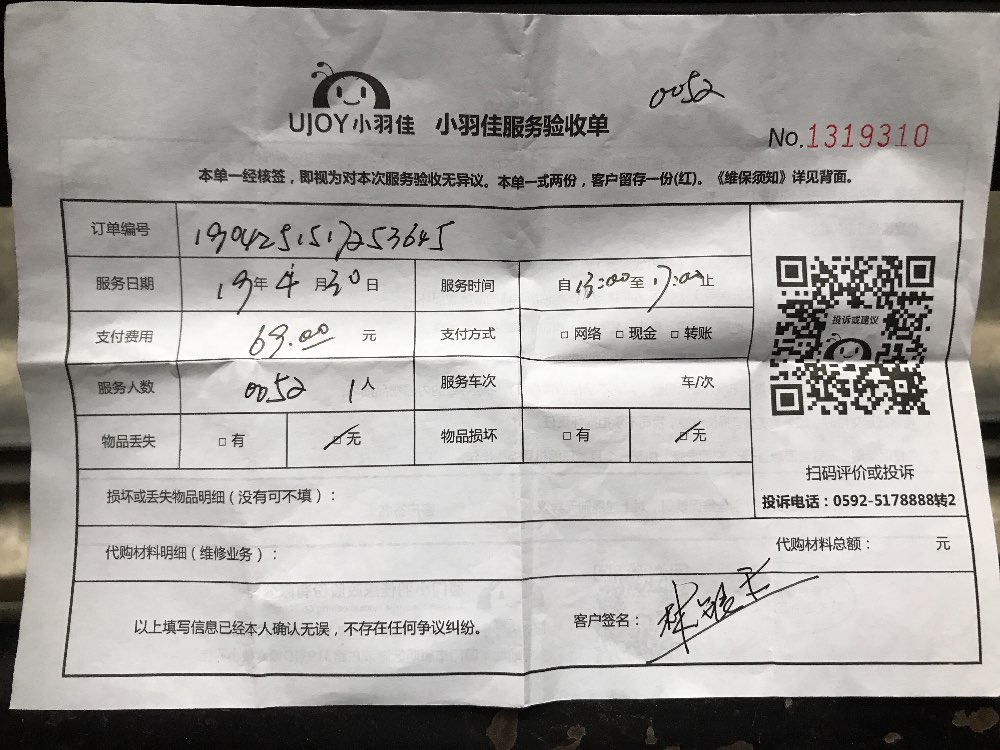 0052
UJOY小羽佳 小羽佳服务验收单
No.1319310
本单一经核签，即视为对本次服务验收无异议。本单一式两份，客户留存一份(红)。《维保须知》详见背面。
订单编号 1904251517253645
服务日期 19年4月30日 服务时间 自13:00至17:00止
支付费用 69.00 元 支付方式 □ 网络 □ 现金 □ 转账
服务人数 0052 1人 服务车次 车/次
物品丢失 □ 有 □ 无 物品损坏 □ 有 □ 无
投诉或建议
扫码评价或投诉
投诉电话：0592-5178888转2
损坏或丢失物品明细（没有可不填）：
代购材料明细（维修业务）： 代购材料总额： 元
以上填写信息已经本人确认无误，不存在任何争议纠纷。 客户签名：